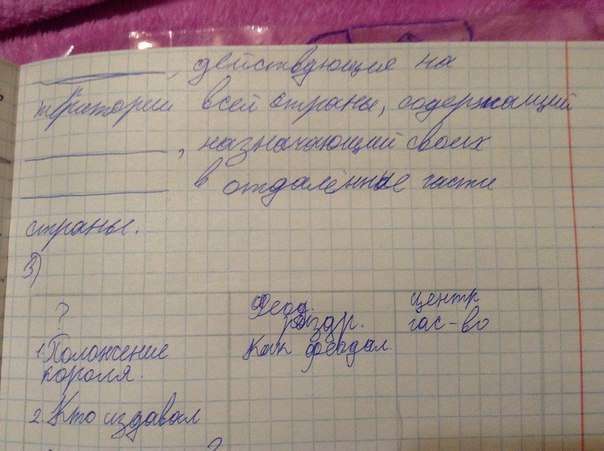 , действующие на
територии всей страны, содержащий
, назначающий своих
в отдалённые части
страны.
3)
? Феод. центр
раздр. гос-во
1. Положение Как феодал
короля.
2. Кто издавал
?